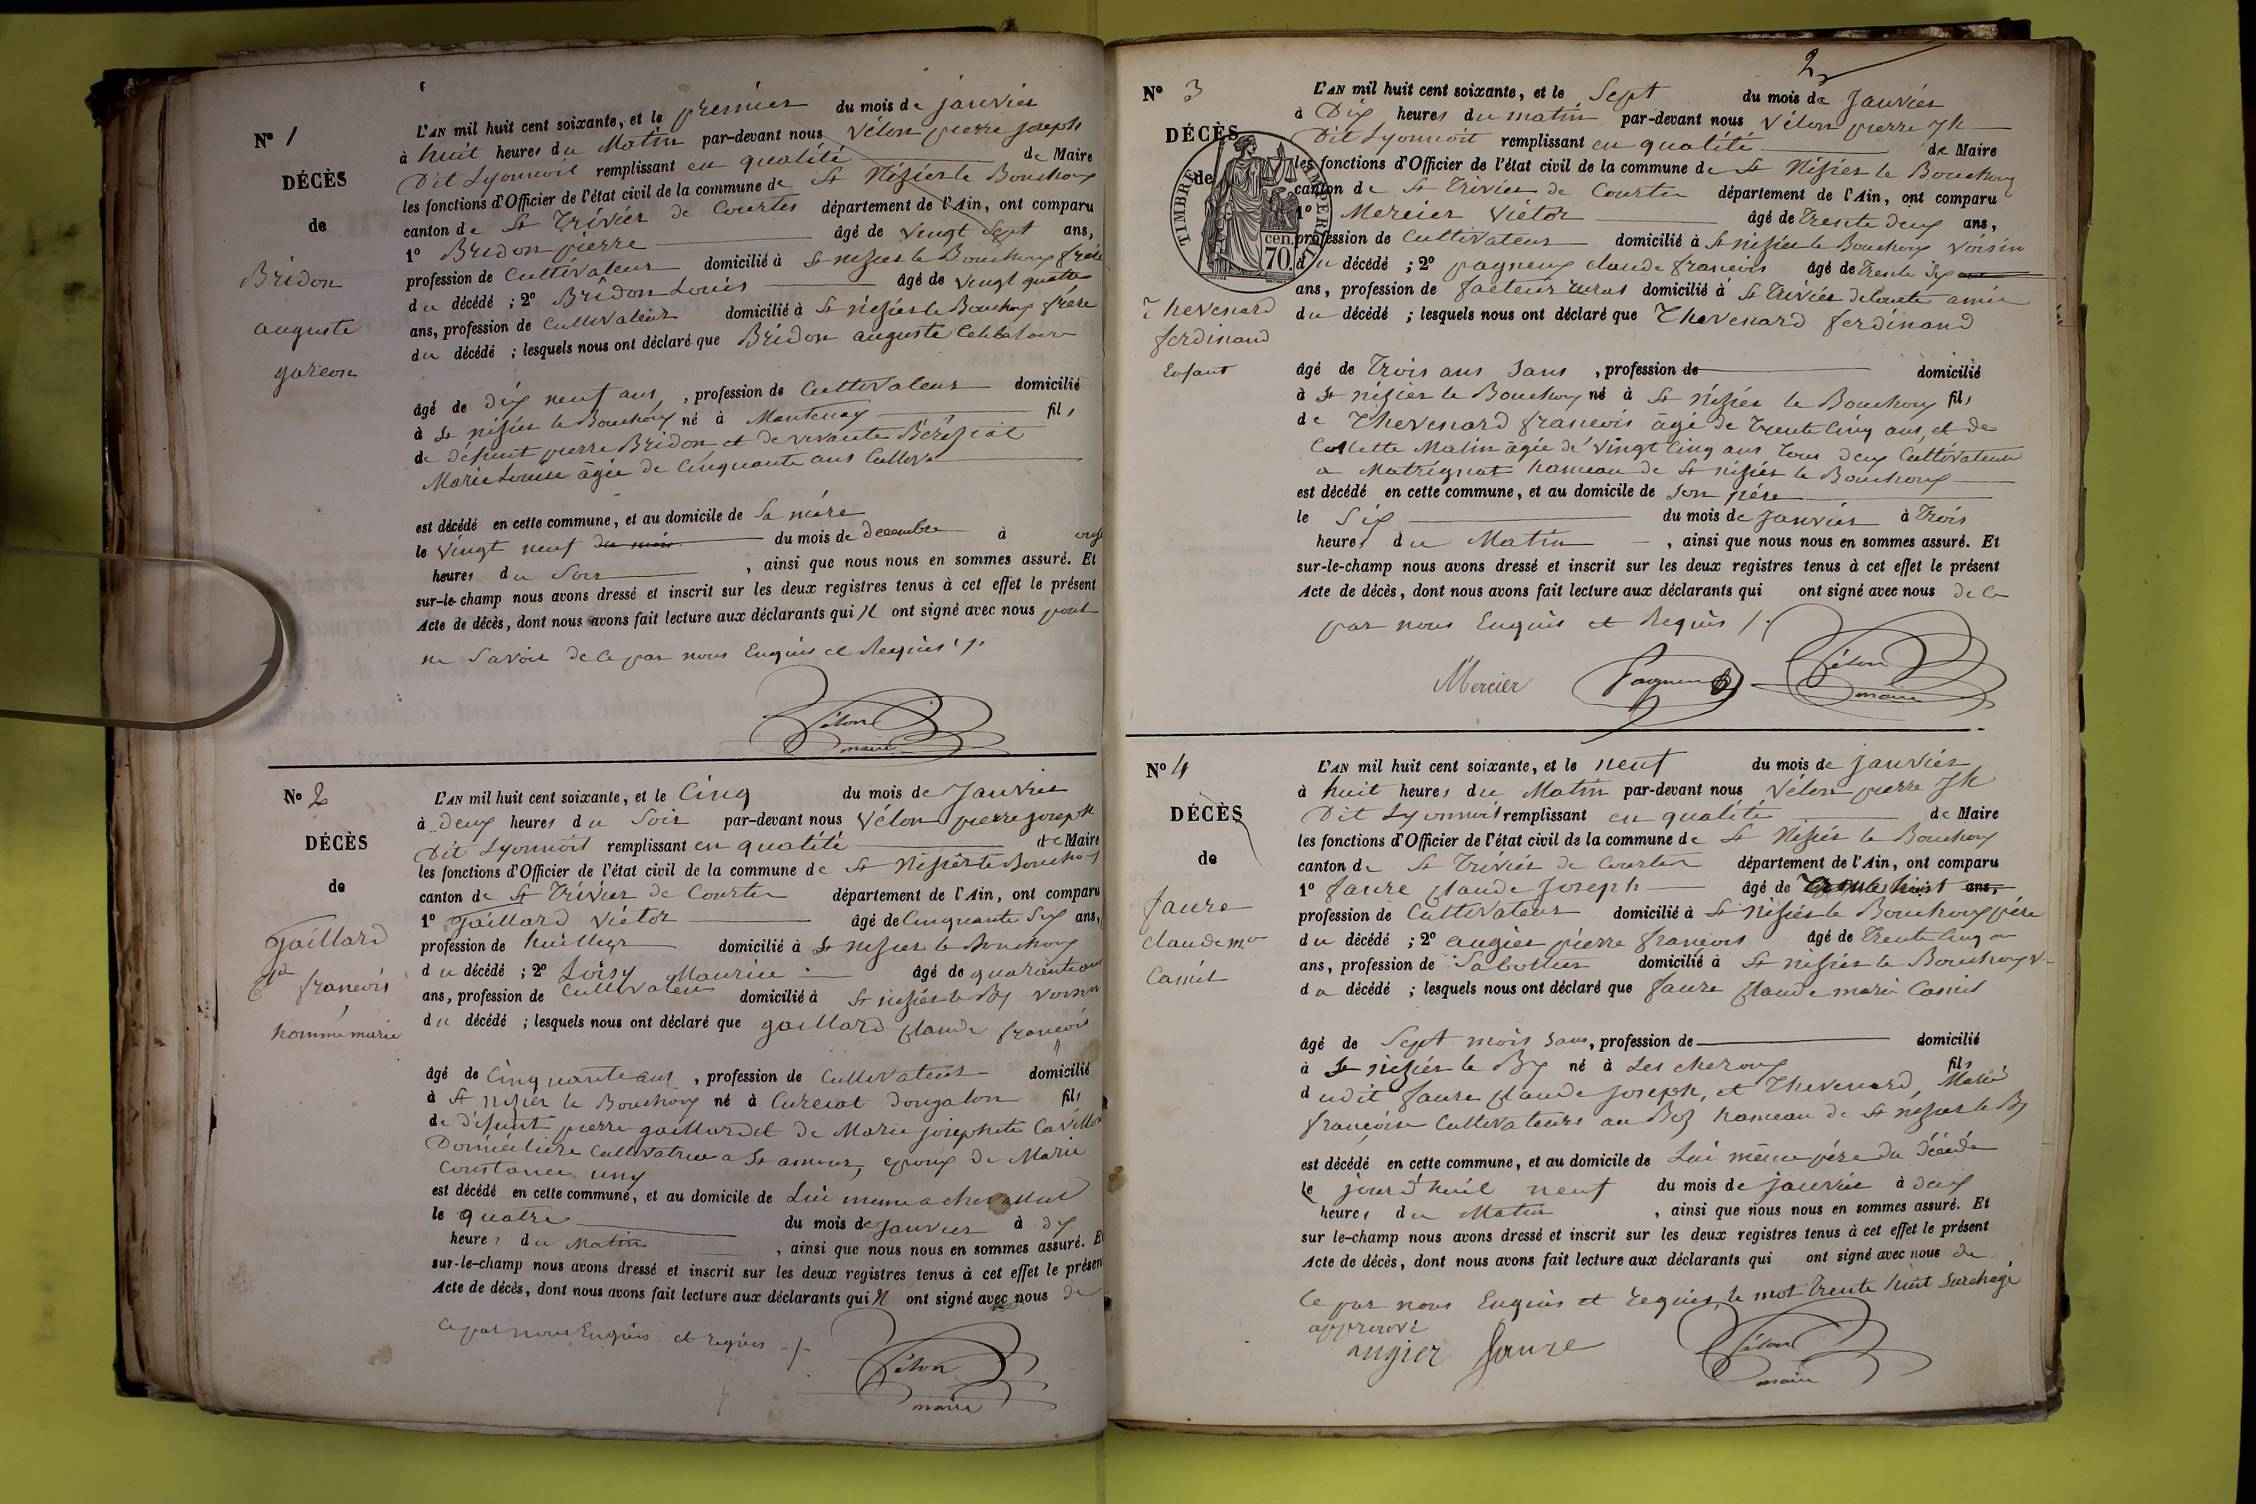 N° 1
DÉCÈS
de
Bridon
auguste
garcon
L'AN mil huit cent soixante, et le premier du mois de janvier
à huit heures du Matin par-devant nous Vélon pierre joseph
Dit Lyonnois remplissant en qualité de Maire
les fonctions d'Officier de l'état civil de la commune de St Nizier le Bouchoux
canton de St Trivier de Courtes département de l'Ain, ont comparu
1° Bridon pierre âgé de vingt sept ans,
profession de Cultivateur domicilié à St nizier le Bouchoux frère
du décédé ; 2° Bridon Louis âgé de vingt quatre
ans, profession de Cultivateur domicilié à St nizier le Bouchoux frère
du décédé ; lesquels nous ont déclaré que Bridon auguste Celibataire
âgé de dix neuf ans, profession de Cultivateur domicilié
à St nizier le Bouchoux né à Mantenay fils
de défunt pierre Bridon et de vivante Béréziat
Marie Louise âgée de Cinquante ans Cultiv.
est décédé en cette commune, et au domicile de Sa mère
le vingt neuf du mois du mois de decembre à onze
heures du Soir, ainsi que nous nous en sommes assuré. Et
sur-le-champ nous avons dressé et inscrit sur les deux registres tenus à cet effet le présent
Acte de décès, dont nous avons fait lecture aux déclarants qui N ont signé avec nous pour
ne Savoir de ce par nous Enquis et Requis
Vélon
maire
N° 2
DÉCÈS
de
Gaillard
Cde francois
homme marié
L'AN mil huit cent soixante, et le Cinq du mois de Janvier
à Deux heures du Soir par-devant nous Vélon pierre joseph
Dit Lyonnois remplissant en qualité de Maire
les fonctions d'Officier de l'état civil de la commune de St Nizier le Bouchoux
canton de St Trivier de Courtes département de l'Ain, ont comparu
1° Gaillard Victor âgé de Cinquante Six ans,
profession de huillier domicilié à St nizier le Bouchoux
du décédé ; 2° Loisy Maurice âgé de quarante ans
ans, profession de Cultivateur domicilié à St nizier le Bx voisin
du décédé ; lesquels nous ont déclaré que gaillard Claude francois
âgé de Cinquante ans, profession de Cultivateur domicilié
à St nizier le Bouchoux né à Curciat Dongalon fils
de défunt pierre gaillard et de Marie josephete
Cultivatrice a St amour, epoux de Marie
Constance
est décédé en cette commune, et au domicile de Lui meme a
le quatre du mois de Janvier à dix
heures du Matin, ainsi que nous nous en sommes assuré. Et
sur-le-champ nous avons dressé et inscrit sur les deux registres tenus à cet effet le présent
Acte de décès, dont nous avons fait lecture aux déclarants qui N ont signé avec nous de
ce par nous Enquis et requis
Vélon
maire
2
N° 3
DÉCÈS
de
TIMBRE IMPERIAL
70 cen.
Thevenard
ferdinand
Enfant
L'AN mil huit cent soixante, et le Sept du mois de Janvier
à Dix heures du matin par-devant nous Vélon pierre Jh
Dit Lyonnois remplissant en qualité de Maire
les fonctions d'Officier de l'état civil de la commune de St Nizier le Bouchoux
canton de St Trivier de Courtes département de l'Ain, ont comparu
1° Mercier Victor âgé de Trente deux ans,
profession de Cultivateur domicilié à St nizier le Bouchoux voisin
du décédé ; 2° pagneux claude francois âgé de Trente Six
ans, profession de facteur rural domicilié à St Trivier de Courte amie
du décédé ; lesquels nous ont déclaré que Thevenard ferdinand
âgé de Trois ans Sans, profession de domicilié
à St nizier le Bouchoux né à St nizier le Bouchoux fils
de Thevenard francois âgé de Trente Cinq ans, et de
Collette Matin âgée de Vingt Cinq ans, Tous deux Cultivateurs
a Matrignat hameau de St nizier le Bouchoux
est décédé en cette commune, et au domicile de Son père
le Six du mois de Janvier à Trois
heures du Matin, ainsi que nous nous en sommes assuré. Et
sur-le-champ nous avons dressé et inscrit sur les deux registres tenus à cet effet le présent
Acte de décès, dont nous avons fait lecture aux déclarants qui ont signé avec nous de ce
par nous Enquis et Requis
Mercier Pagneux Vélon
maire
N° 4
DÉCÈS
de
faure
claude mie
Camil
L'AN mil huit cent soixante, et le neuf du mois de janvier
à huit heures du Matin par-devant nous Vélon pierre Jh
Dit Lyonnois remplissant en qualité de Maire
les fonctions d'Officier de l'état civil de la commune de St Nizier le Bouchoux
canton de St Trivier de Courtes département de l'Ain, ont comparu
1° faure Claude Joseph âgé de Trente huit ans,
profession de Cultivateur domicilié à St Nizier le Bouchoux père
du décédé ; 2° augier pierre francois âgé de Trente Cinq
ans, profession de Sabotier domicilié à St nizier le Bouchoux v
du décédé ; lesquels nous ont déclaré que faure Claude marie Camil
âgé de Sept mois Sans, profession de domicilié
à St nizier le Bx né à Les cheroux fils
dudit faure Claude Joseph, et Thevenard, Marie
françoise Cultivateurs au Boz hameau de St nizier le Bx
est décédé en cette commune, et au domicile de Lui même père du décédé
le jourd'huit neuf du mois de janvier à deux
heures du Matin, ainsi que nous nous en sommes assuré. Et
sur le-champ nous avons dressé et inscrit sur les deux registres tenus à cet effet le présent
Acte de décès, dont nous avons fait lecture aux déclarants qui ont signé avec nous de
Ce par nous Enquis et requis, le mot Trente huit Surchagé
approuvé
augier faure Vélon
maire